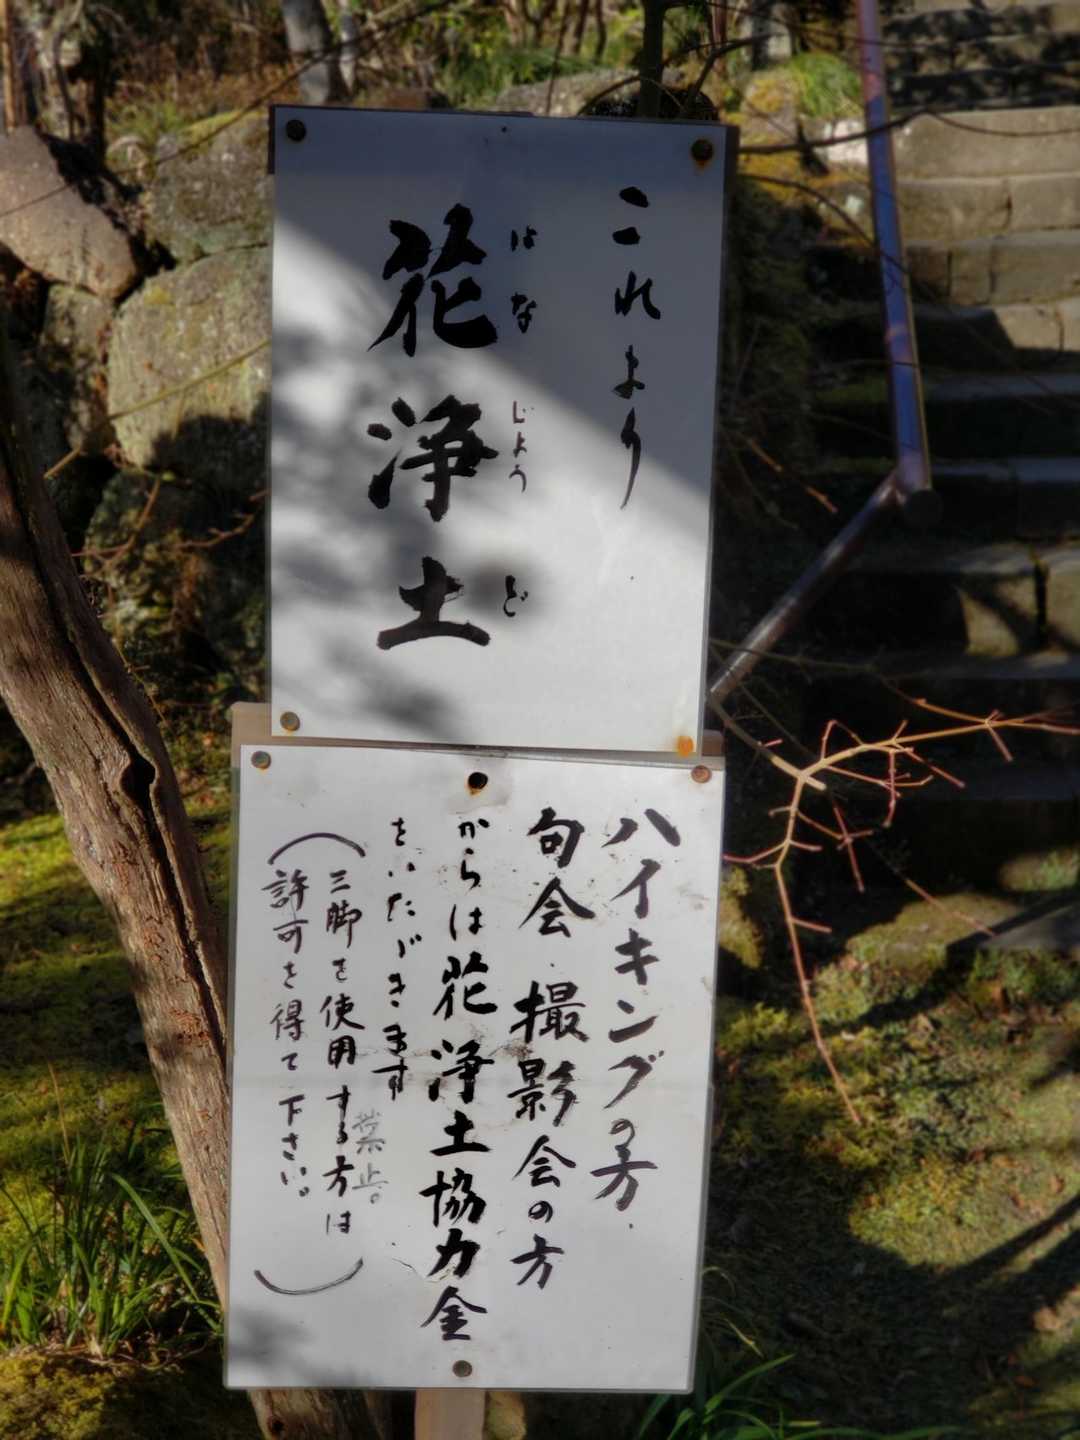 これより
はな じょう ど
花浄土
ハイキングの方
句会 撮影会の方
からは花浄土協力金
をいただきます
禁止。
(三脚を使用する方は
許可を得て下さい。)